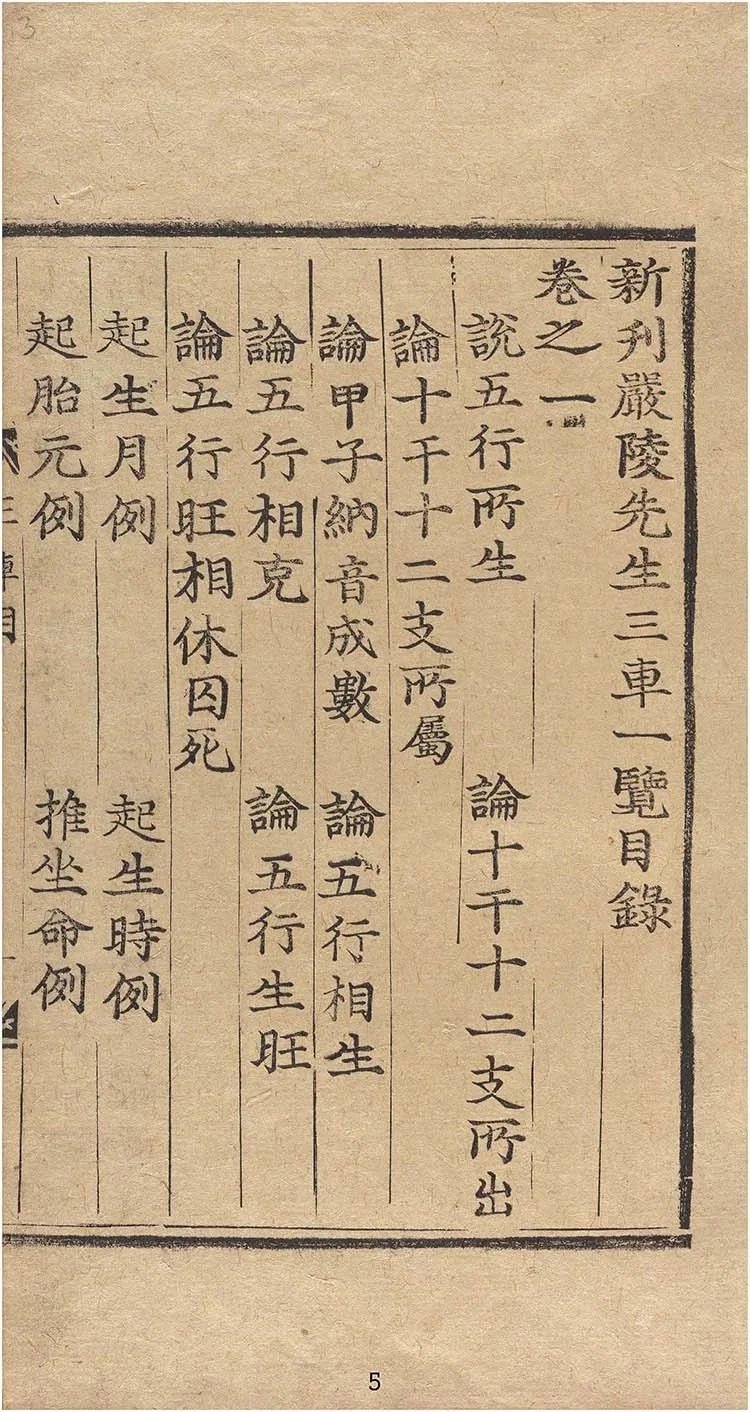 新刋嚴陵先生三車一覽目錄
卷之一
說五行所生 論十干十二支所出
論十干十二支所屬
論甲子納音成數 論五行相生
論五行相克 論五行生旺
論五行旺相休囚死
起生月例 起生時例
起胎元例 推坐命例
5
3